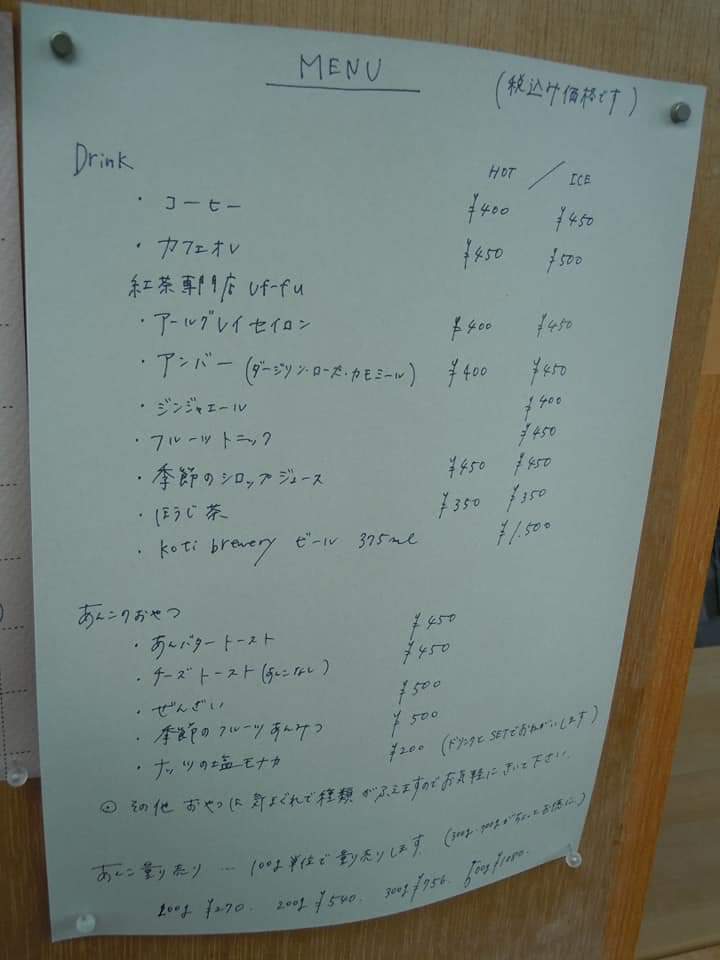 MENU
(税込み価格です)
Drink HOT / ICE
・コーヒー ¥400 ¥450
・カフェオレ ¥450 ¥500
紅茶専門店 uf-fu
・アールグレイセイロン ¥400 ¥450
・アンバー (ダージリン・ローズ・カモミール) ¥400 ¥450
・ジンジャエール ¥400
・フルーツトニック ¥450
・季節のシロップジュース ¥450 ¥450
・ほうじ茶 ¥350 ¥350
・koti brewery ビール 375ml ¥1,500
あんこのおやつ
・あんバタートースト ¥450
・チーズトースト(あんこなし) ¥450
・ぜんざい ¥500
・季節のフルーツあんみつ ¥500
・ナッツの塩モナカ ¥200 (ドリンクとSETでおねがいします)
その他 おやつは 気まぐれで種類がふえますのでお気軽にきいて下さい.
あんこ量り売り … 100g単位で量り売りします
100g ¥270. 200g ¥540. 300g ¥756. 500g ¥1080.